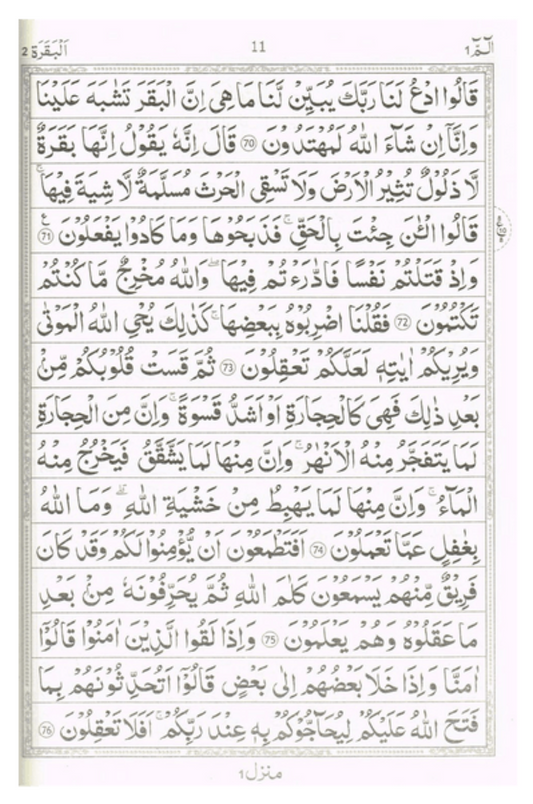 الٓمّٓ ١ 11 اَلْبَقَرَة ٢
قَالُوا ادْعُ لَنَا رَبَّكَ يُبَيِّنْ لَّنَا مَا هِىَ اِنَّ الْبَقَرَ تَشٰبَهَ عَلَيْنَا
وَاِنَّآ اِنْ شَآءَ اللّٰهُ لَمُهْتَدُوْنَ 70 قَالَ اِنَّهٗ يَقُوْلُ اِنَّهَا بَقَرَةٌ
لَّا ذَلُوْلٌ تُثِيْرُ الْاَرْضَ وَلَا تَسْقِى الْحَرْثَ مُسَلَّمَةٌ لَّا شِيَةَ فِيْهَا ۚ
قَالُوا الْـٰٔنَ جِئْتَ بِالْحَقِّ ۚ فَذَبَحُوْهَا وَمَا كَادُوْا يَفْعَلُوْنَ 71
وَاِذْ قَتَلْتُمْ نَفْسًا فَادّٰرَءْتُمْ فِيْهَا ۖ وَاللّٰهُ مُخْرِجٌ مَّا كُنْتُمْ
تَكْتُمُوْنَ 72 فَقُلْنَا اضْرِبُوْهُ بِبَعْضِهَا ۚ كَذٰلِكَ يُحْىِ اللّٰهُ الْمَوْتٰى
وَيُرِيْكُمْ اٰيٰتِهٖ لَعَلَّكُمْ تَعْقِلُوْنَ 73 ثُمَّ قَسَتْ قُلُوْبُكُمْ مِّنْۢ
بَعْدِ ذٰلِكَ فَهِىَ كَالْحِجَارَةِ اَوْ اَشَدُّ قَسْوَةً ۚ وَاِنَّ مِنَ الْحِجَارَةِ
لَمَا يَتَفَجَّرُ مِنْهُ الْاَنْهٰرُ ۚ وَاِنَّ مِنْهَا لَمَا يَشَّقَّقُ فَيَخْرُجُ مِنْهُ
الْمَآءُ ۚ وَاِنَّ مِنْهَا لَمَا يَهْبِطُ مِنْ خَشْيَةِ اللّٰهِ ۗ وَمَا اللّٰهُ
بِغٰفِلٍ عَمَّا تَعْمَلُوْنَ 74 اَفَتَطْمَعُوْنَ اَنْ يُّؤْمِنُوْا لَكُمْ وَقَدْ كَانَ
فَرِيْقٌ مِّنْهُمْ يَسْمَعُوْنَ كَلٰمَ اللّٰهِ ثُمَّ يُحَرِّفُوْنَهٗ مِنْۢ بَعْدِ
مَا عَقَلُوْهُ وَهُمْ يَعْلَمُوْنَ 75 وَاِذَا لَقُوا الَّذِيْنَ اٰمَنُوْا قَالُوْٓا
اٰمَنَّا وَاِذَا خَلَا بَعْضُهُمْ اِلٰى بَعْضٍ قَالُوْٓا اَتُحَدِّثُوْنَهُمْ بِمَا
فَتَحَ اللّٰهُ عَلَيْكُمْ لِيُحَآجُّوْكُمْ بِهٖ عِنْدَ رَبِّكُمْ ۚ اَفَلَا تَعْقِلُوْنَ 76
منزل ١